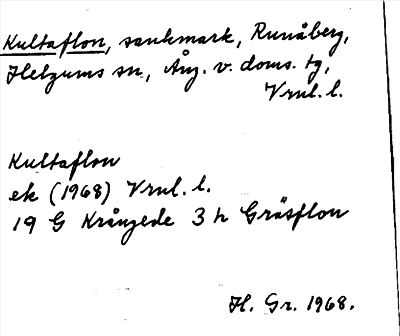 Kultaflon, sankmark, Runåberg,
Helgums sn, Ång. v. doms. tg,
Vrnl. l.
Kultaflon
ek (1968) Vrnl. l.
19 G Krångede 3 h Gräsflon
H. Gr. 1968.